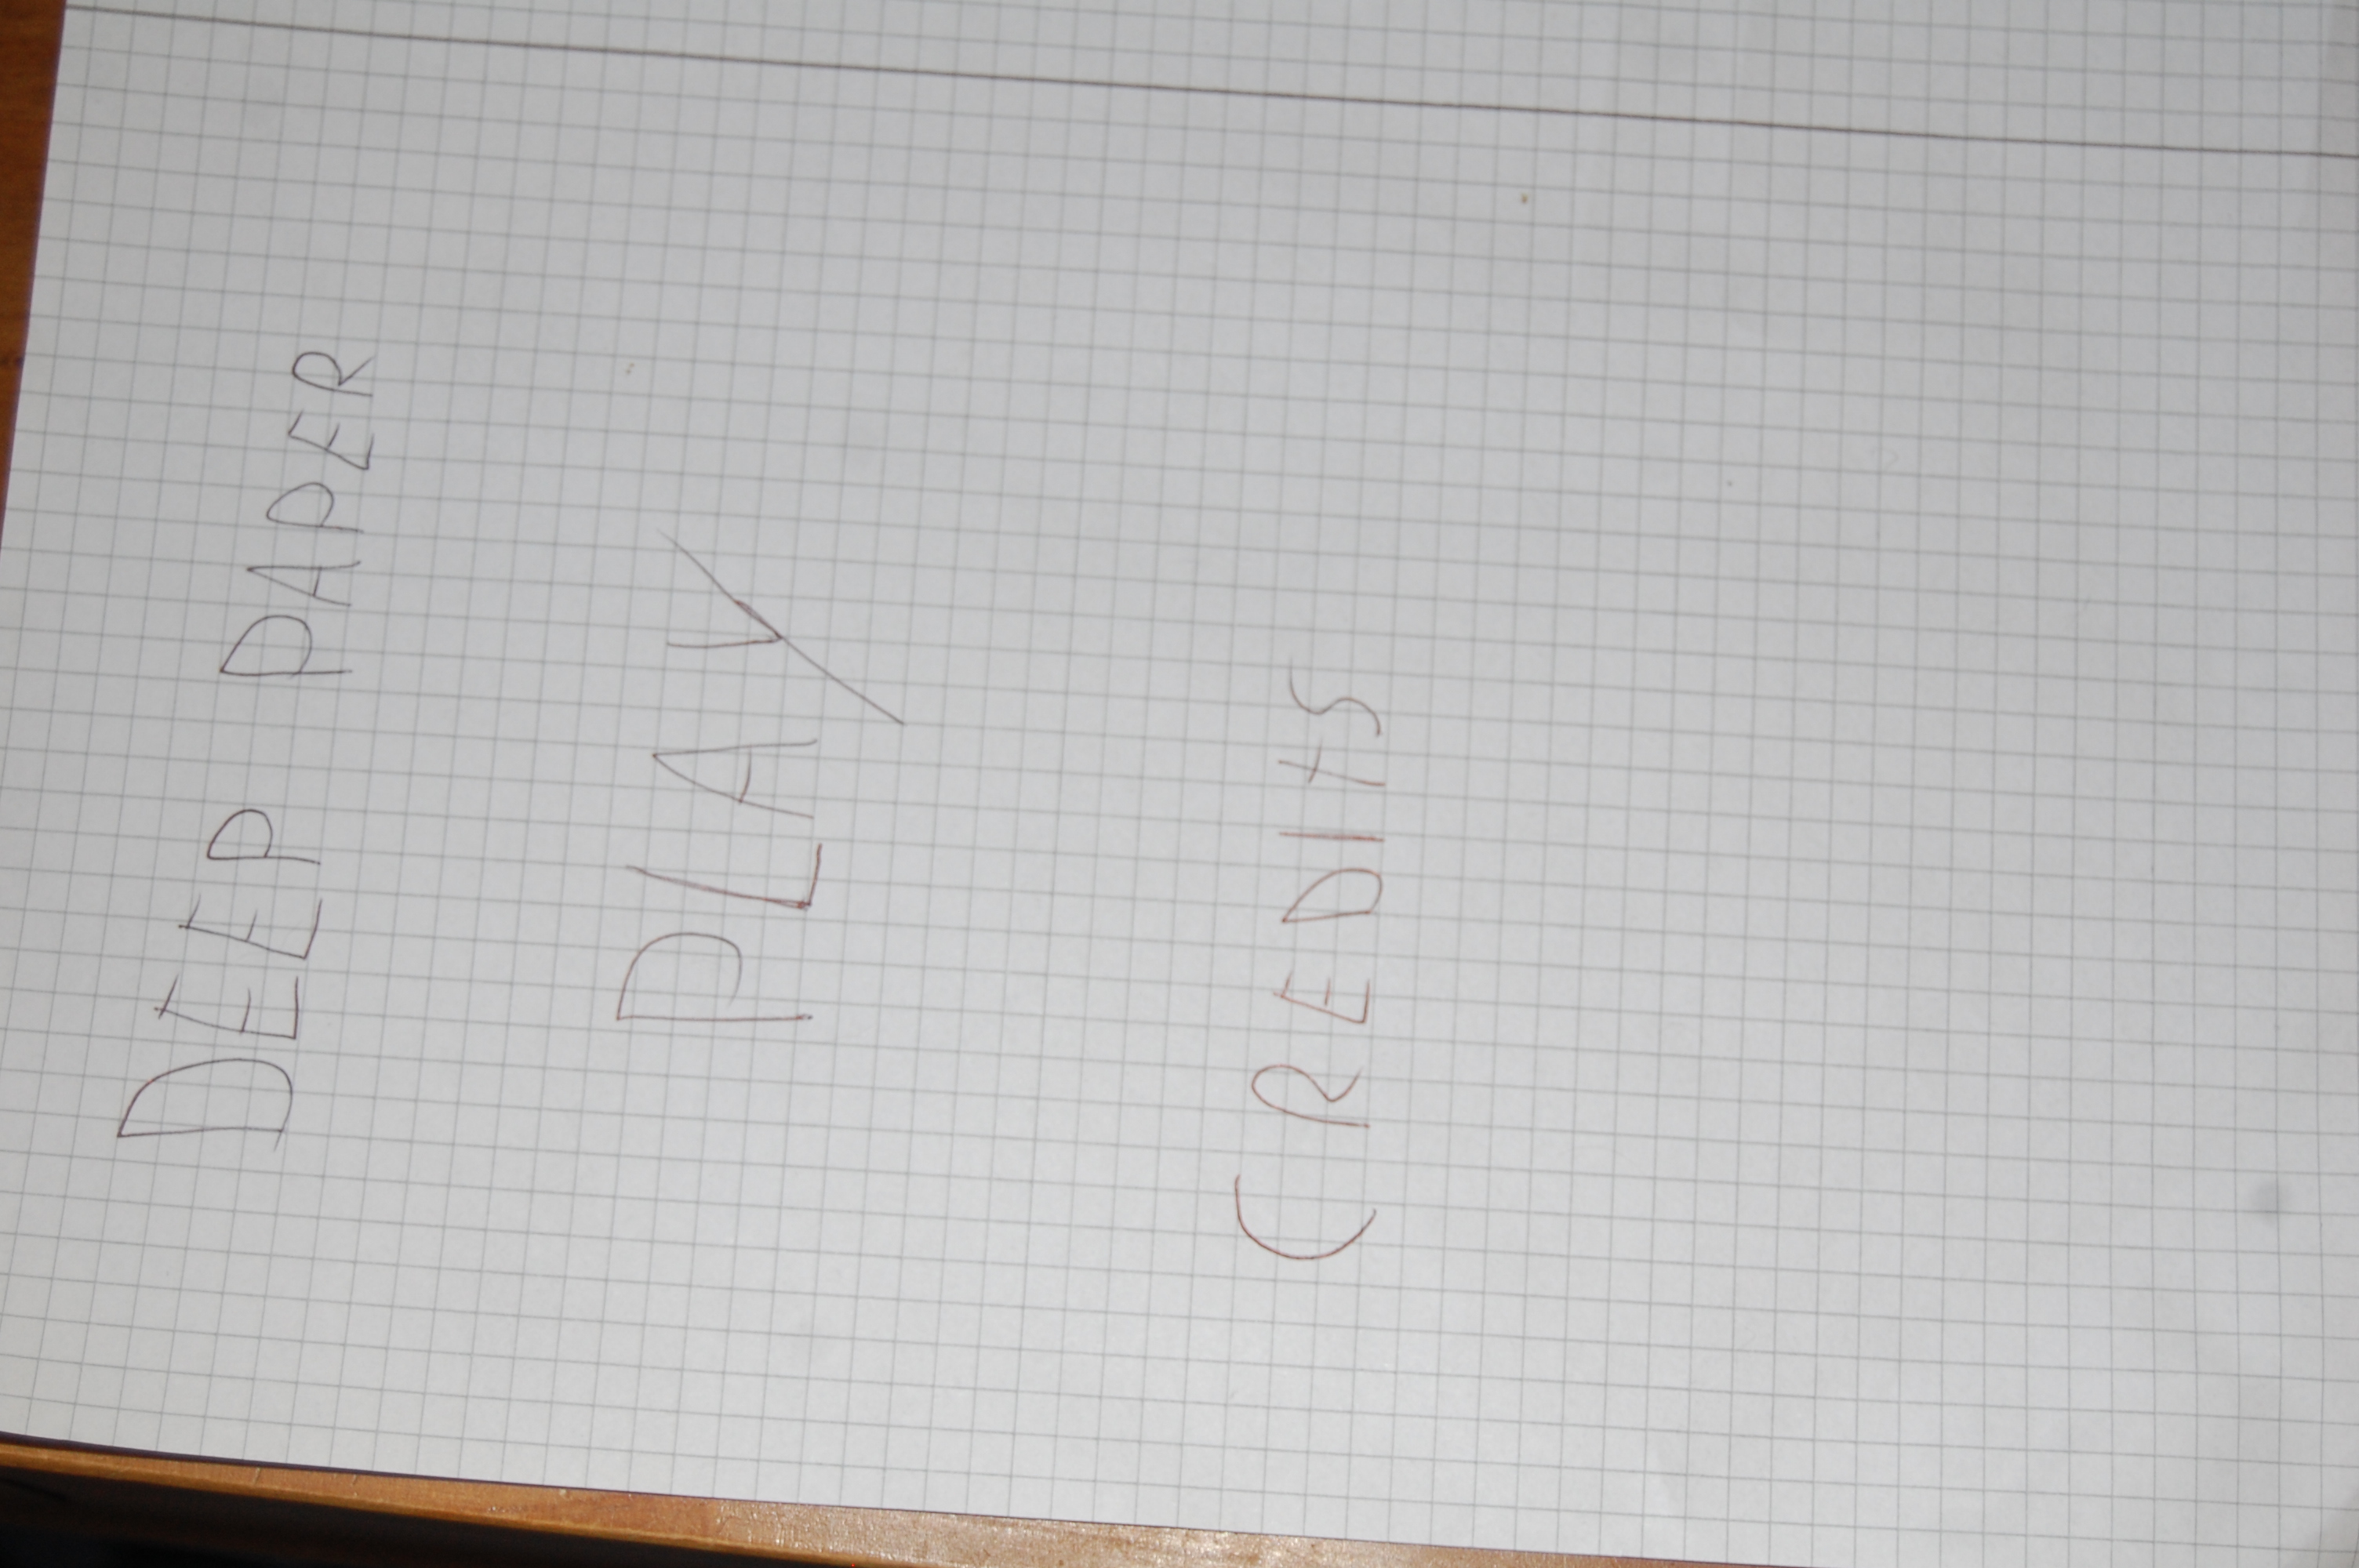 DEEP PAPER
PLAY
CREDItS